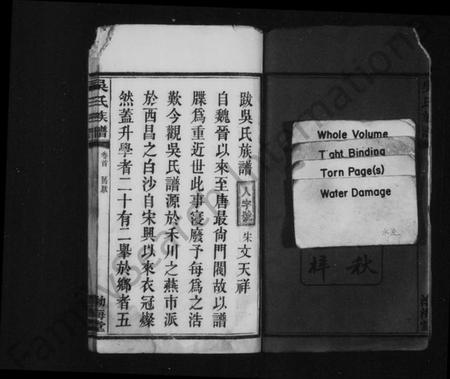 跋吳氏族譜
宋文天祥
自魏晉以來至唐最尙門閥故以譜
牒爲重近世此事寖廢予每爲之浩
歎今觀吳氏譜源於禾川之燕市派
於西昌之白沙自宋興以來衣冠燦
然蓋升學者二十有二舉於鄉者五
吳氏族譜
卷首
渤海堂
Whole Volume
Tight Binding
Torn Page(s)
Water Damage